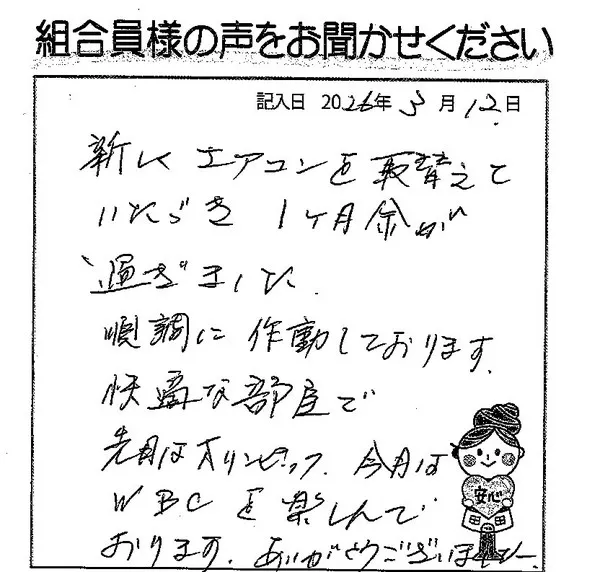 組合員様の声をお聞かせください
記入日 2026年3月12日
新しくエアコンを取替えて
いただき 1ヶ月余が
過ぎました.
順調に作動しております.
快適な部屋で
先月はオリンピック. 今月は
WBCを楽しんで
おります. ありがとうございました.
安心